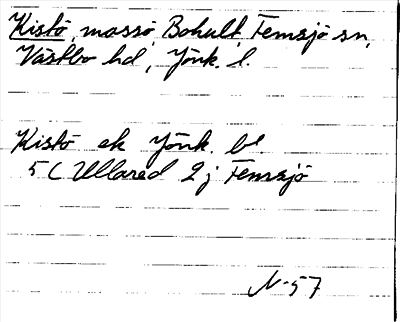 Kistö, mossö, Bohult, Femsjö sn,
Västbo hd, Jönk. l.
Kistö ek Jönk. bl
5 C Ullared 2 j Femsjö
N-57